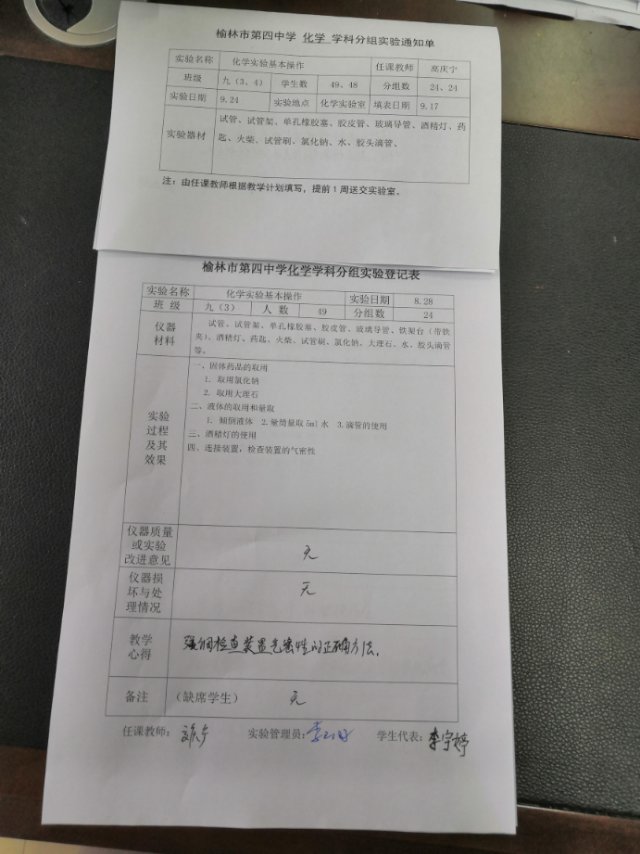 榆林市第四中学 化学 学科分组实验通知单
实验名称 化学实验基本操作 任课教师 高庆宁
班级 九（3、4） 学生数 49、48 分组数 24、24
实验日期 9.24 实验地点 化学实验室 填表日期 9.17
实验器材 试管、试管架、单孔橡胶塞、胶皮管、玻璃导管、酒精灯、药
匙、火柴、试管刷、氯化钠、水、胶头滴管。
注：由任课教师根据教学计划填写，提前1周送交实验室。
榆林市第四中学化学学科分组实验登记表
实验名称 化学实验基本操作 实验日期 8.28
班 级 九（3） 人 数 49 分组数 24
仪器
材料
试管、试管架、单孔橡胶塞、胶皮管、玻璃导管、铁架台（带铁
夹）、酒精灯、药匙、火柴、试管刷、氯化钠、大理石、水、胶头滴管
等。
实验
过程
及其
效果
一、固体药品的取用
1. 取用氯化钠
2. 取用大理石
二、液体的取用和量取
1. 倾倒液体 2.量筒量取5ml水 3.滴管的使用
三、酒精灯的使用
四、连接装置，检查装置的气密性
仪器质量
或实验
改进意见
无
仪器损
坏与处
理情况
无
教学
心得
强调检查装置气密性的正确方法。
备注 （缺席学生） 无
任课教师： 实验管理员： 学生代表：李宇婷